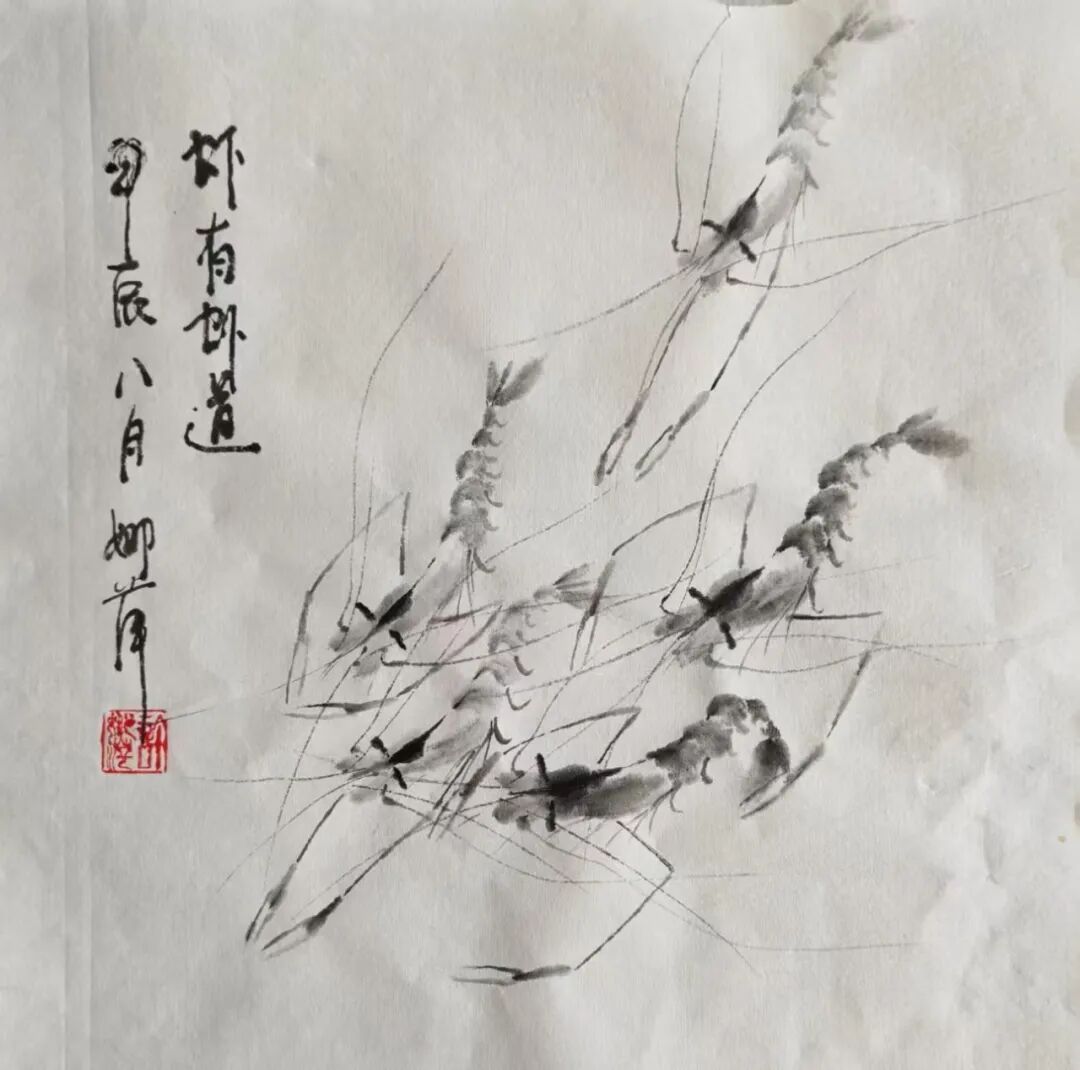 虾有虾道
甲辰八月 娜萍